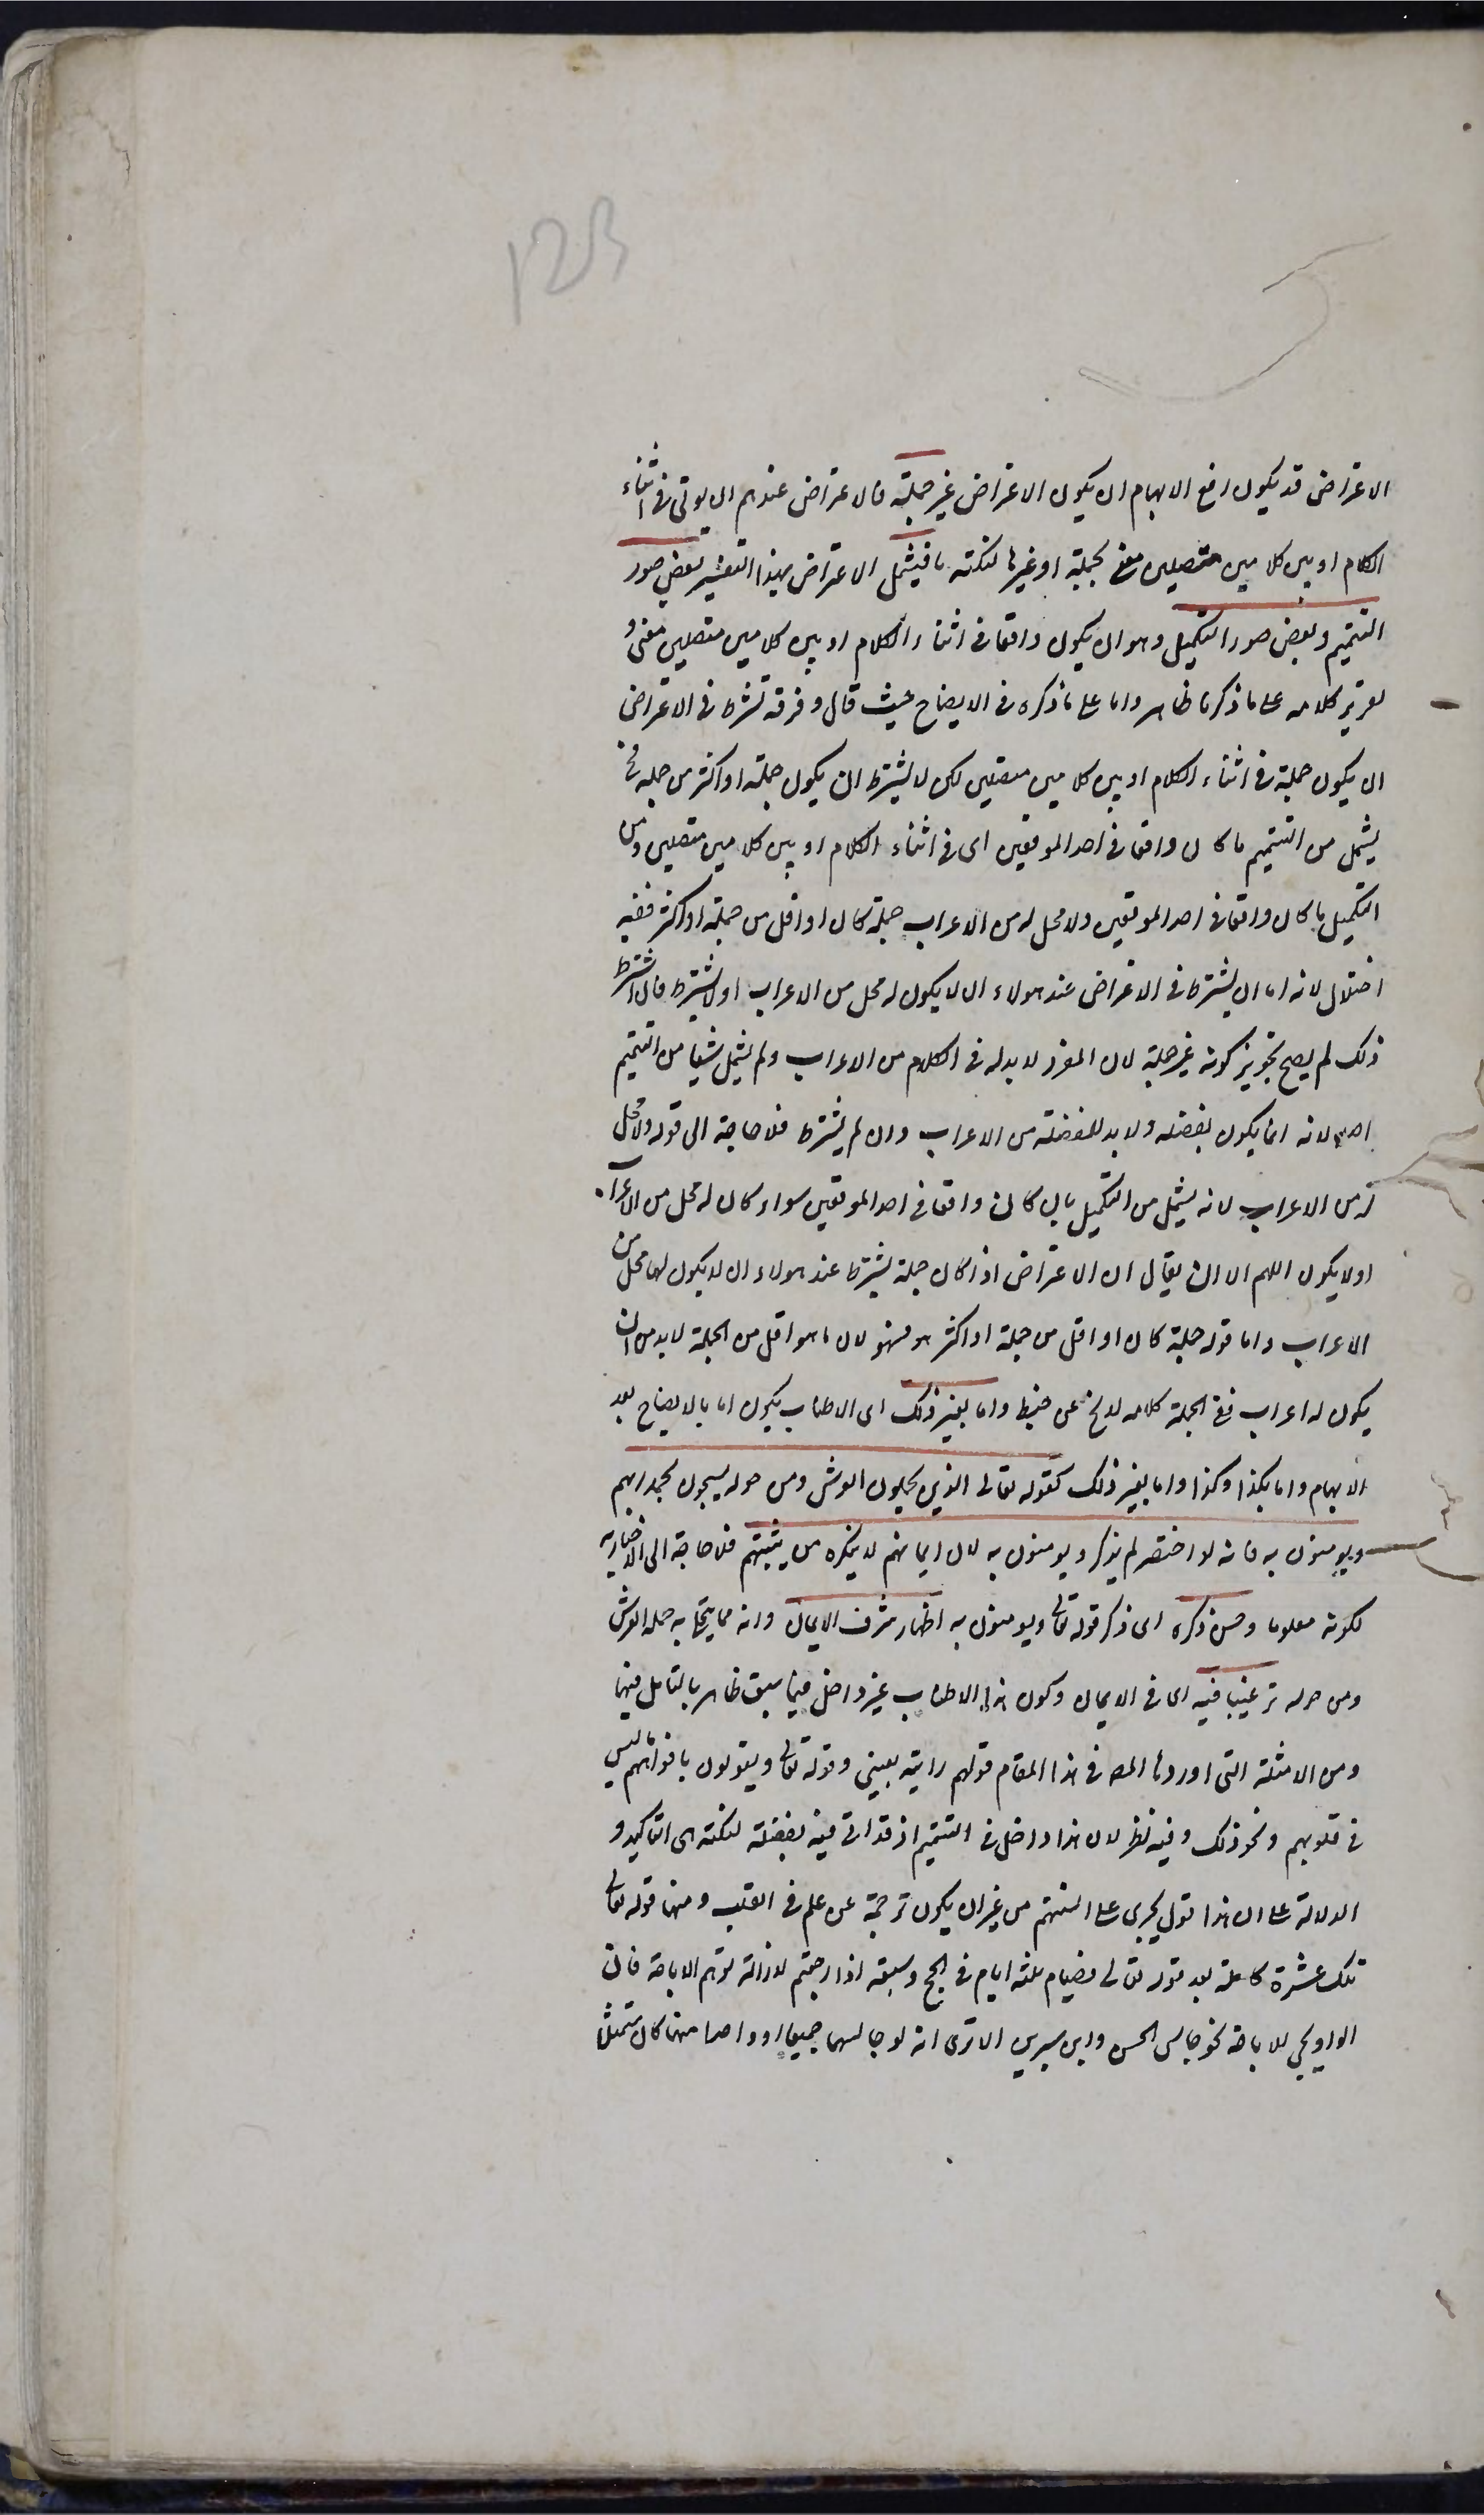 الاعتراض قد يكون رفع الابهام ان يكون الاعتراض غير جملة فالاعتراض عندهم ان يوتى فى اثناء
الكلام او بين كلامين متصلين معنى بجملة او غيرها لنكتة ما فيشمل الاعتراض بهذا التفسير بعض صور
التتميم وبعض صور التكميل وهو ان يكون واقعا فى اثناء الكلام او بين كلامين متصلين معنى و
تقرير كلامه على ما ذكرنا ظاهر واما على ما ذكره فى الايضاح حيث قال وفرقة تشترط فى الاعتراض
ان يكون جملة فى اثناء الكلام او بين كلامين متصلين لكن لا يشترط ان يكون جملة او اكثر من جملة فح
يشمل من التتميم ما كان واقعا فى احد الموقعين اى فى اثناء الكلام او بين كلامين متصلين ومن
التكميل ما كان واقعا فى احد الموقعين ولا محل له من الاعراب جملة كان او اقل من جملة او اكثر ففيه
اختلال لانه اما ان يشترط فى الاعتراض عند هولاء ان لا يكون له محل من الاعراب اولا يشترط فان اشترط
ذلك لم يصح تجويز كونه غير جملة لان المفرد لا بد له فى الكلام من الاعراب ولم يشمل شيئا من التتميم
اصلا لانه انما يكون بفضلة ولا بد للفضلة من الاعراب وان لم يشترط فلا حاجة الى قوله ولا محل
له من الاعراب لانه يشمل من التكميل ما كان واقعا فى احد الموقعين سواء كان له محل من الاعراب
اولا يكون اللهم الا ان يقال ان الاعتراض اذا كان جملة يشترط عند هولاء ان لا يكون لها محل من
الاعراب واما قوله جملة كان او اقل من جملة او اكثر هو سهو لان ما هو اقل من الجملة لا بد من ان
يكون له اعراب ففى الجملة كلامه لا يخ عن خبط واما بغير ذلك اى الاطناب يكون اما بالايضاح بعد
الابهام واما بكذا وكذا واما بغير ذلك كقوله تعالى الذين يحملون العرش ومن حوله يسبحون بحمد ربهم
ويومنون به فانه لو اختصر لم يذكر ويومنون به لان ايمانهم لا ينكره من يثبتهم فلا حاجة الى الاخبار به
لكونه معلوما وحسن ذكره اى ذكر قوله تع ويومنون به اظهار شرف الايمان وانه مما يتحلى به حملة العرش
ومن حوله ترغيبا فيه اى فى الايمان وكون هذا الاطناب غير داخل فيما سبق ظاهر بالتامل فيها
ومن الامثلة التى اوردها المص فى هذا المقام قولهم رايته بعينى وقوله تع ويقولون بافواههم ما ليس
فى قلوبهم ونحو ذلك وفيه نظر لان هذا داخل فى التتميم اذ قد اتى فيه بفضلة لنكتة هى التاكيد و
الدلالة على ان هذا قول يجرى على السنتهم من غير ان يكون ترجمة عن علم فى القلب ومنها قوله تعالى
تلك عشرة كاملة بعد قوله تعالى فصيام ثلثة ايام فى الحج وسبعة اذا رجعتم لازالة توهم الاباحة فان
الواو يجى للاباحة نحو جالس الحسن وابن سيرين الا ترى انه لو جالسهما جميعا او واحدا منهما كان ممتثلا